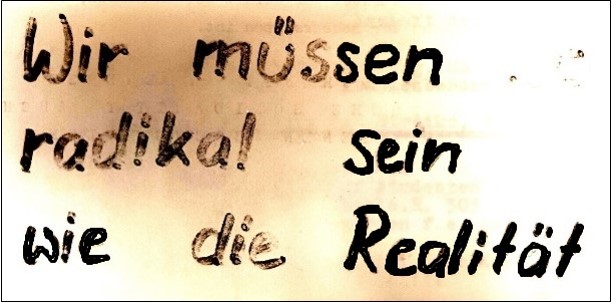 Wir müssen
radikal sein
wie die Realität